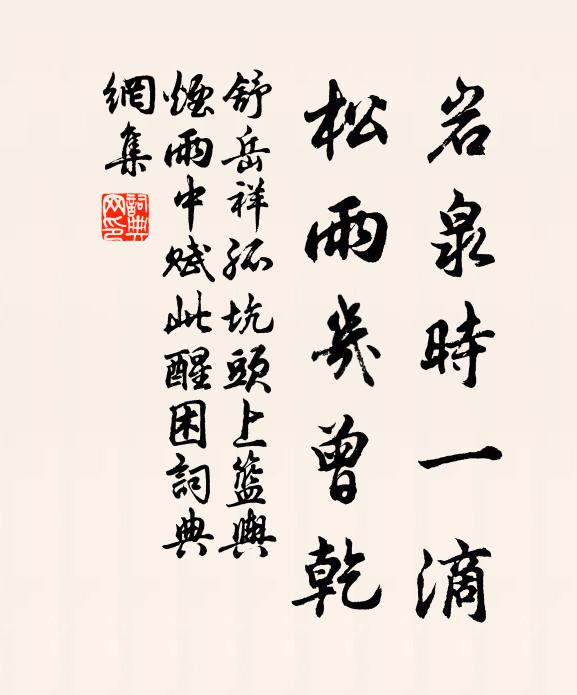 岩泉時一滴
松雨幾曾乾
舒岳祥孤坑頭上籃輿
煙雨中賦此醒困詞典
網集
詞典网印